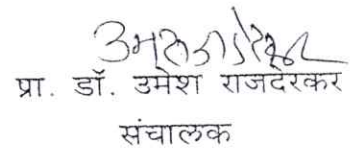 प्रा. डॉ. उमेश राजदेरकर
संचालक